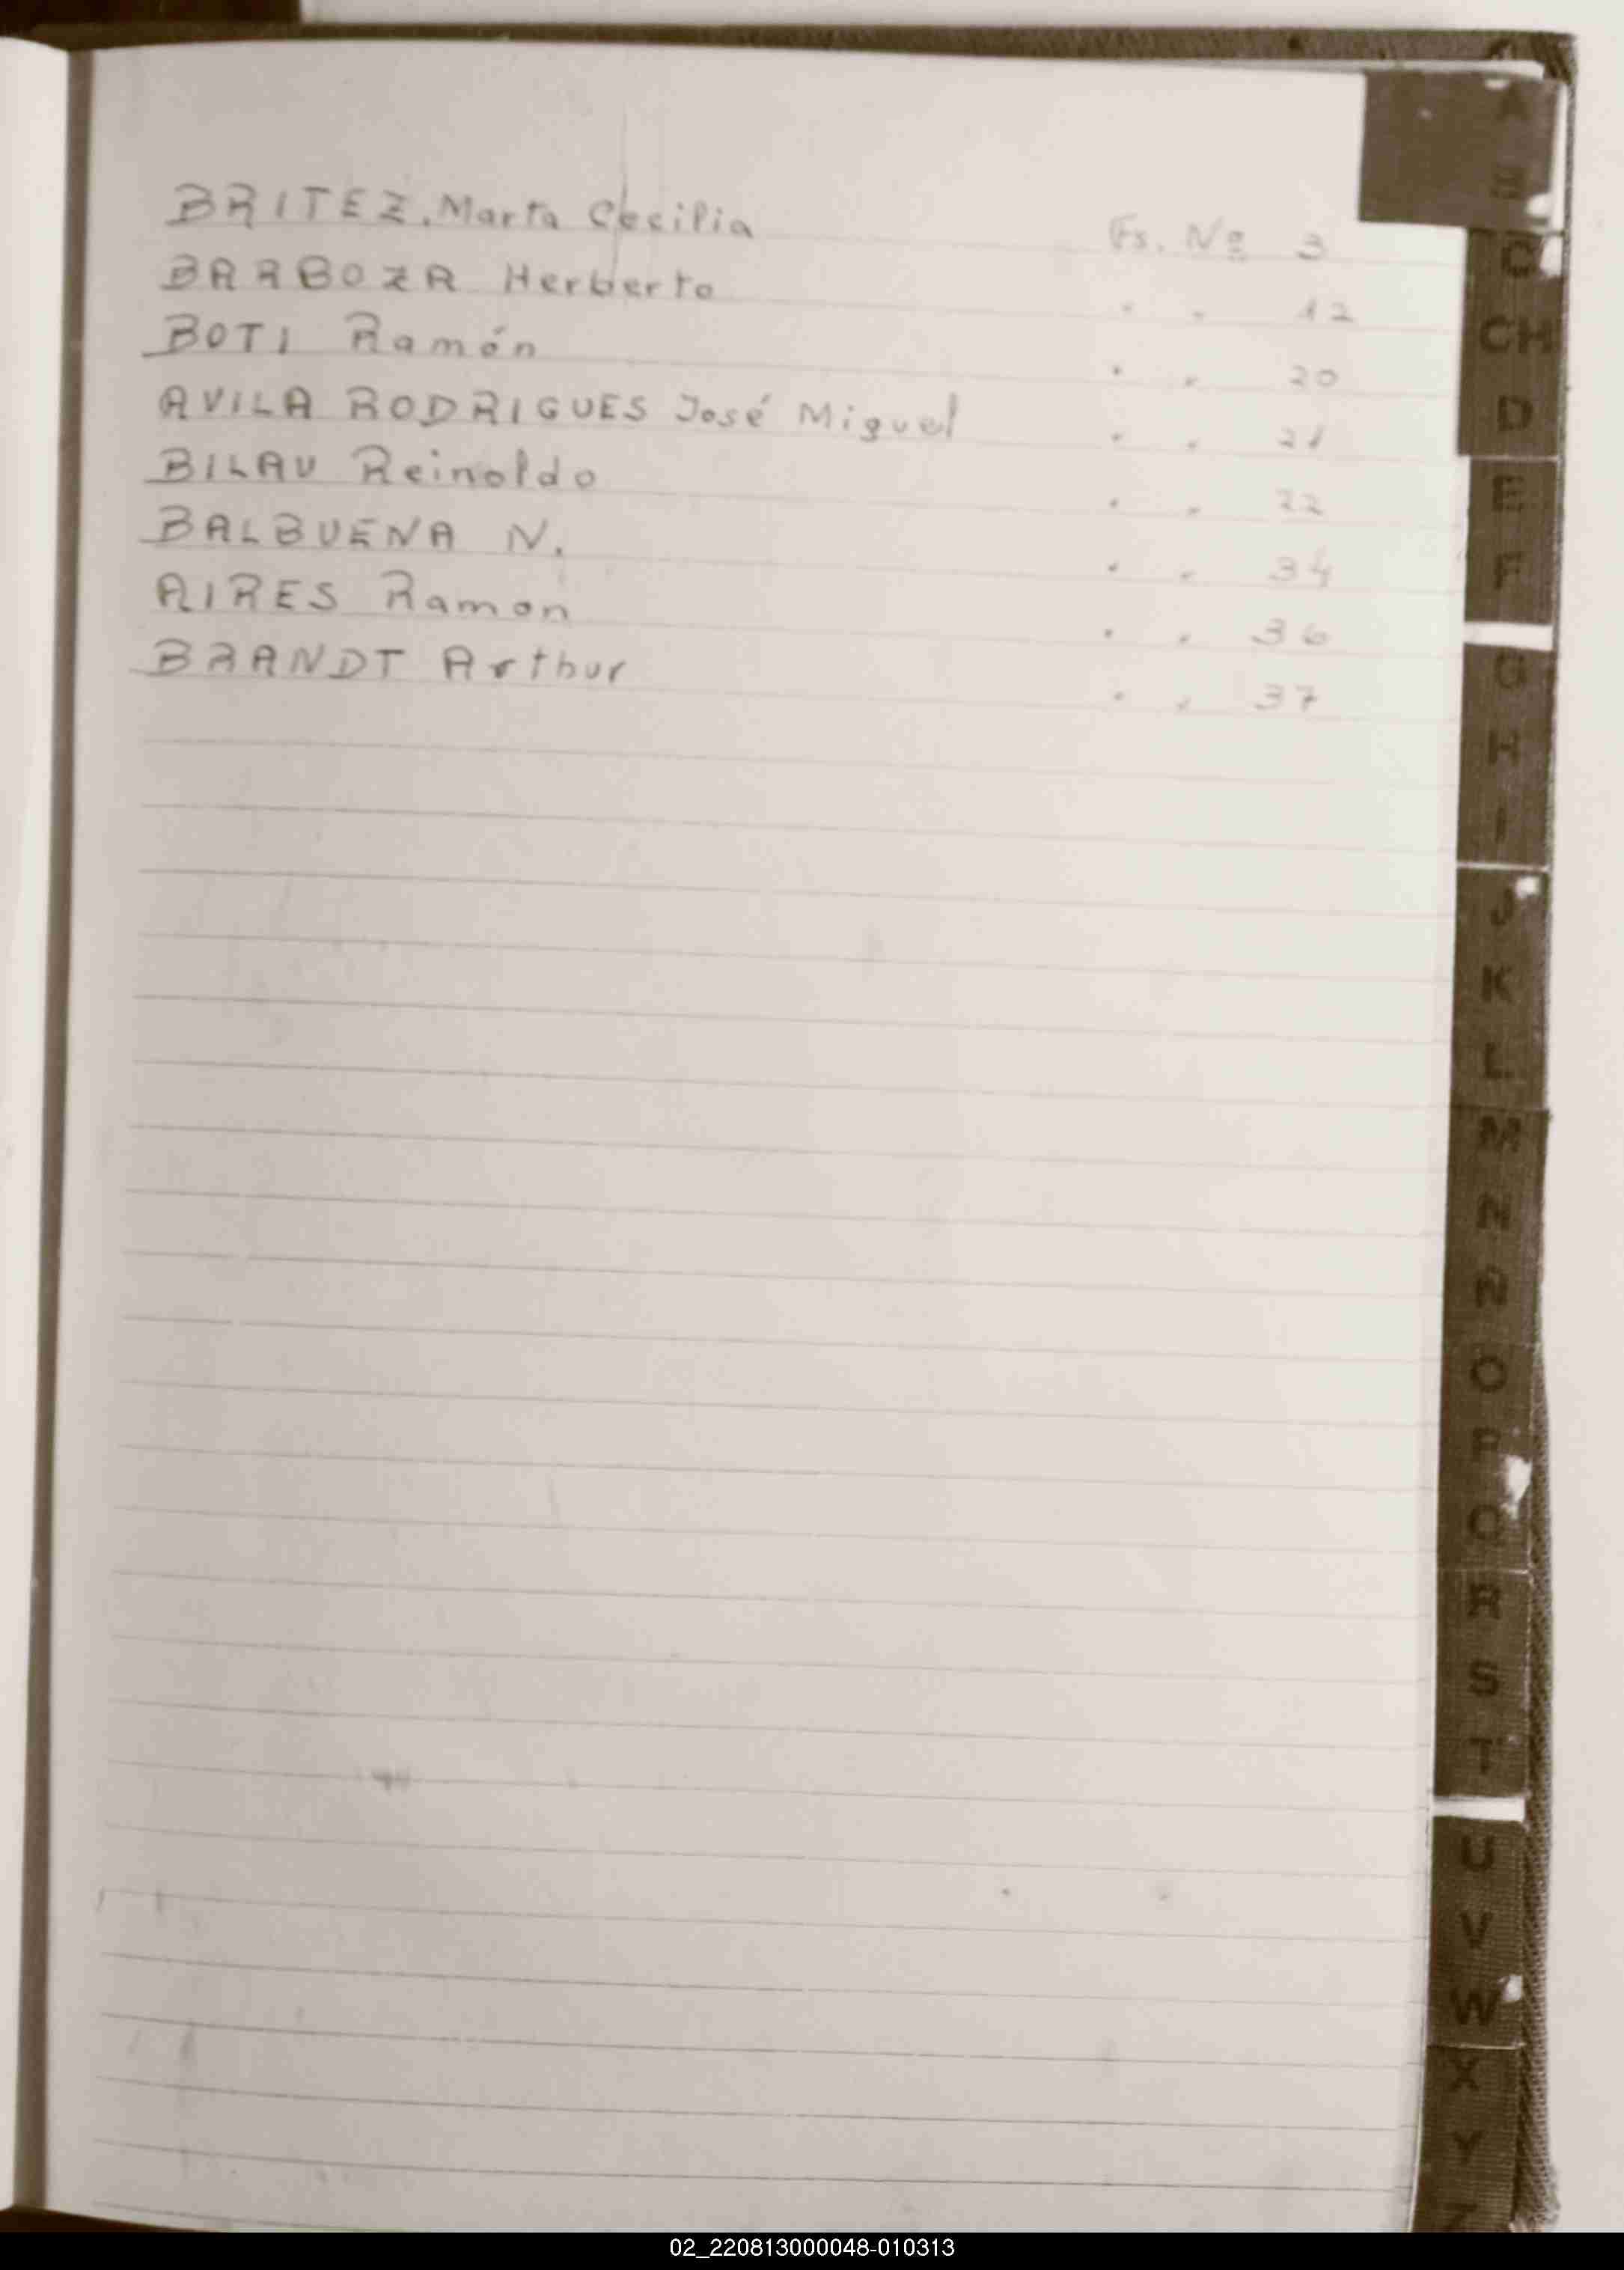 BRITEZ, Marta Cecilia Fs. Nº 3
BARBOZA Herberto " " 12
BOTI Ramón " " 20
AVILA RODRIGUES José Miguel " " 21
BILAU Reinoldo " " 22
BALBUENA N. " " 34
AIRES Ramon " " 36
BRANDT Arthur " " 37
A
B
C
CH
D
E
F
G
H
I
J
K
L
M
N
Ñ
O
P
Q
R
S
T
U
V
W
X
Y
Z
02_220813000048-010313